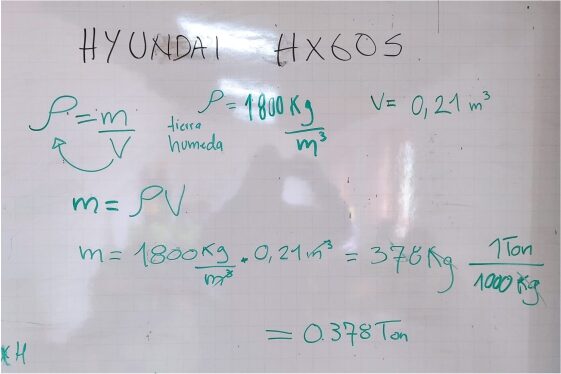 HYUNDAI HX60S
ρ = m/V tierra humeda ρ = 1800 Kg/m³ V = 0,21 m³
m = ρV
m = 1800 Kg/m³ · 0,21 m³ = 378 Kg 1 Ton/1000 Kg
= 0.378 Ton